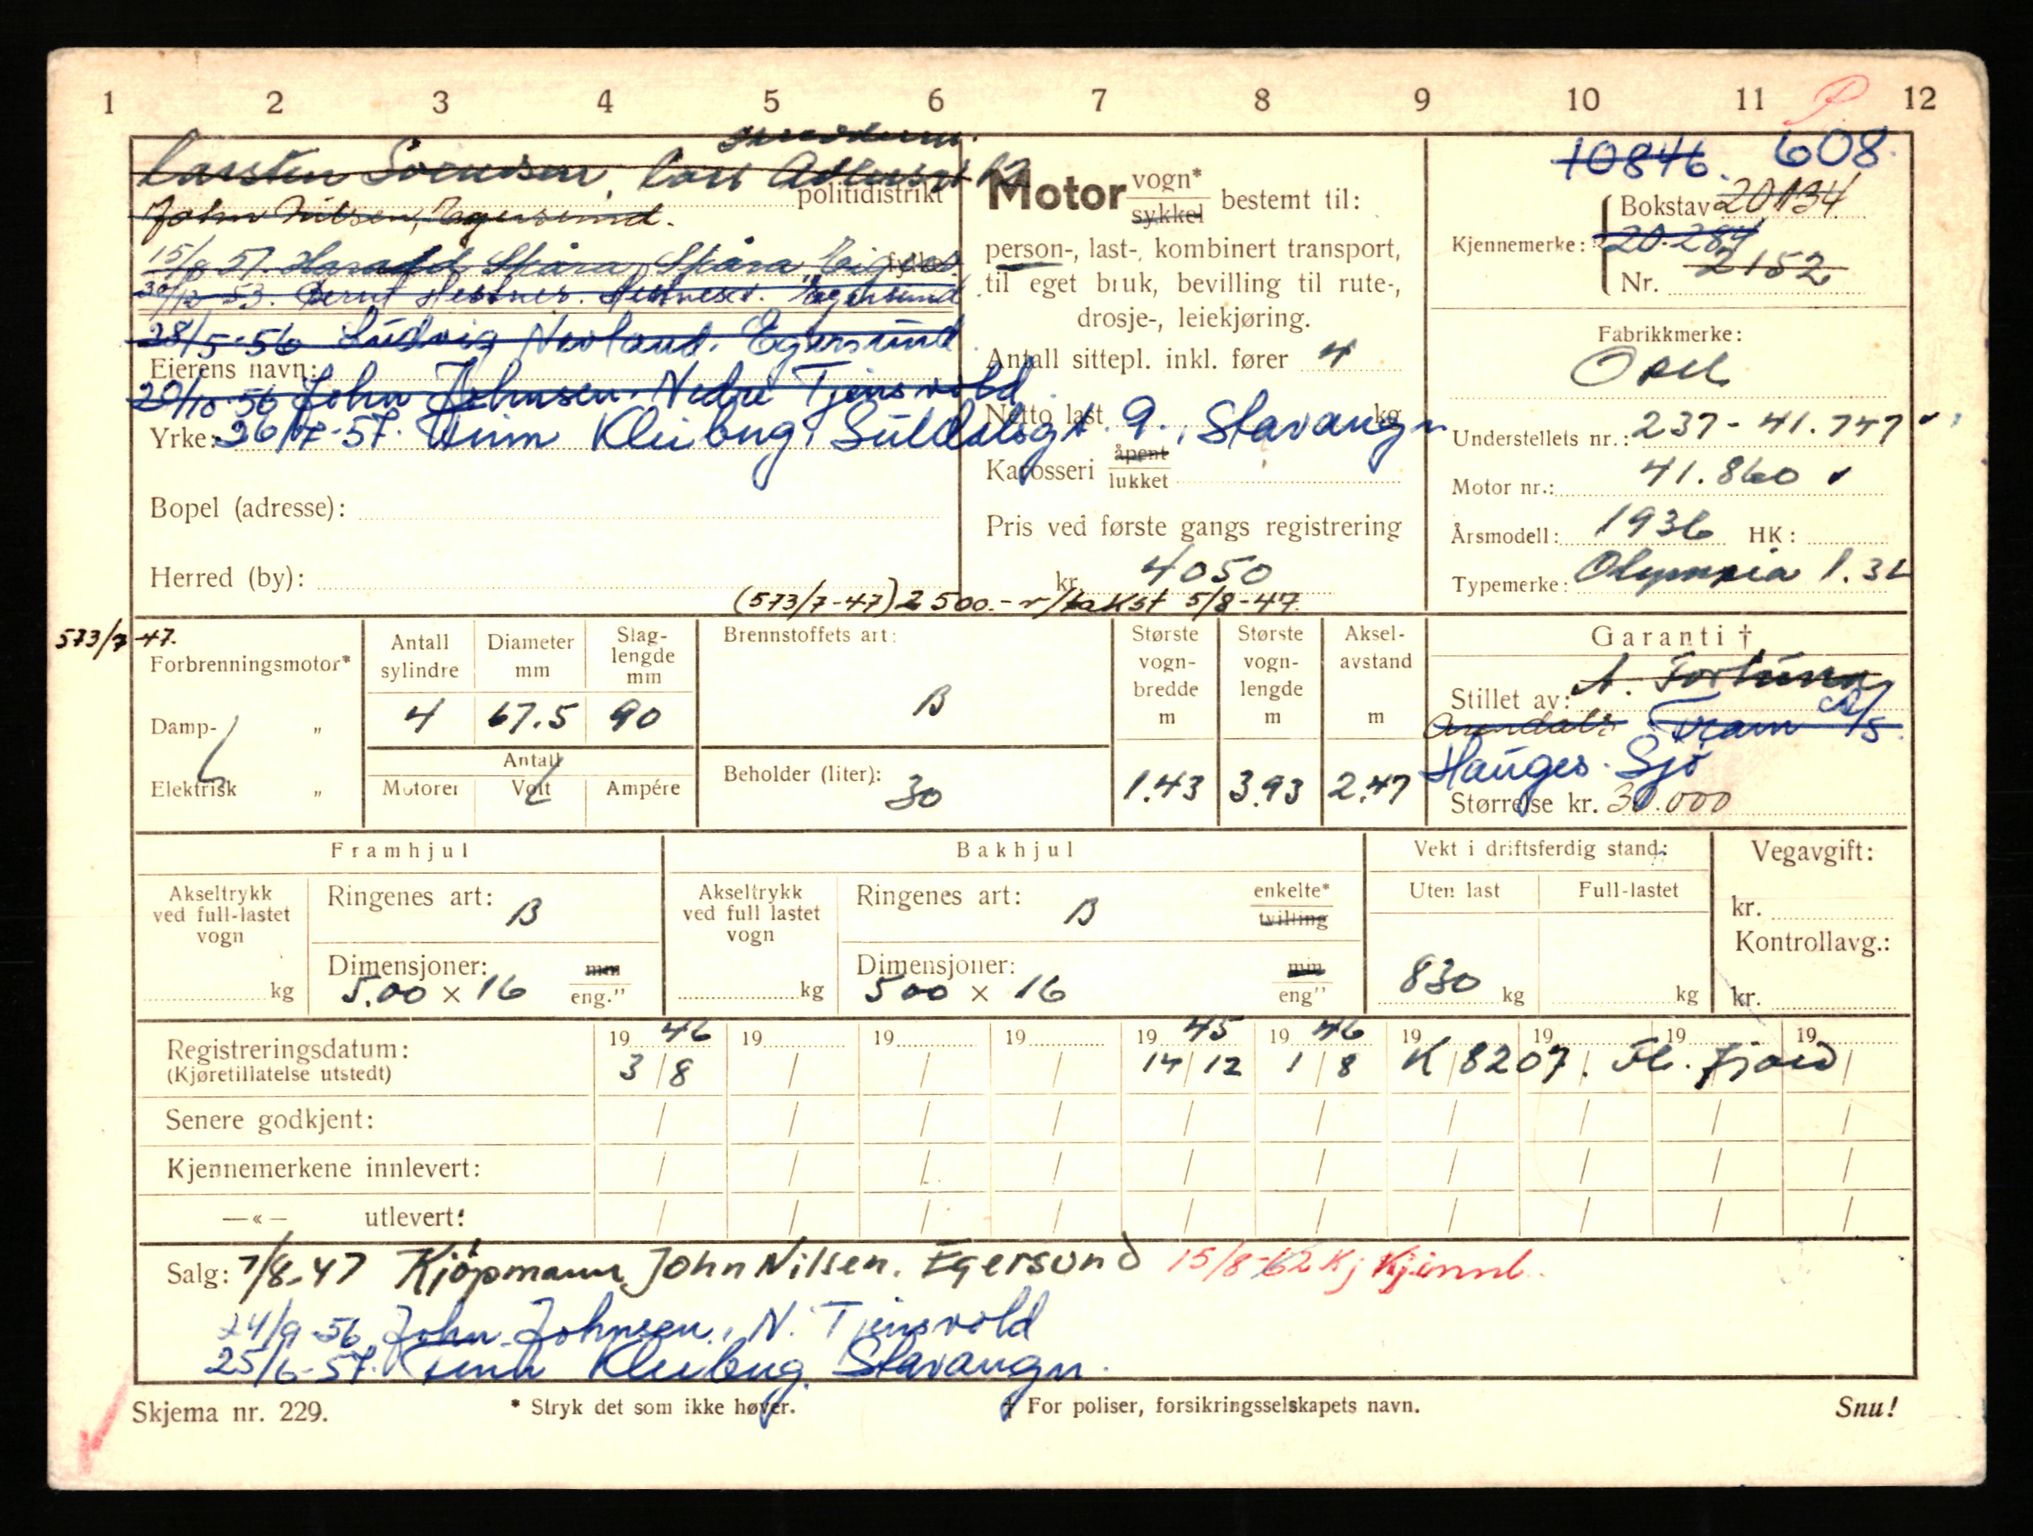 1 2 3 4 5 6 7 8 9 10 11 12
P.
Carsten Sörensen, Carl
politidistrikt
John Nilsen, Egersund.
15/8 57. Harald Skåra, Skåra, Eigers.
30/12-53. Bernt Hestnes. Hestnes. Egersund
28/5-56 Ludvig Nevland. Egersund
Eierens navn:
20/10-56 John Johnsen. Nedre Tjensvold
Yrke: 26/7-57. Finn Kleiberg, Suldalsgt. 9., Stavanger
Bopel (adresse):
Herred (by):
Motor vogn* sykkel bestemt til:
person-, last-, kombinert transport,
til eget bruk, bevilling til rute-,
drosje-, leiekjøring.
Antall sittepl. inkl. fører 4
Netto last kg
Karosseri åpent lukket
Pris ved første gangs registrering
kr. 4050
(573/7-47) 2500.- v/takst 5/8-47.
10846. 608.
Kjennemerke: Bokstav 20134
20-284
Nr. 2152
Fabrikkmerke:
Opel
Understellets nr.: 237-41.747
Motor nr.: 41.860
Årsmodell: 1936 HK:
Typemerke: Olympia 1.3L
573/7-47.
Forbrenningsmotor*
Damp- "
Elektrisk "
Antall sylindre 4
Diameter mm 67.5
Slaglengde mm 90
Antall
Motorer Volt Ampére
Brennstoffets art:
B
Beholder (liter): 30
Største vognbredde m 1.43
Største vognlengde m 3.93
Akselavstand m 2.47
Garanti †
Stillet av: A. Fortuna
Arendals Fram A/S.
Hauges. Sjø
Størrelse kr. 30.000
Framhjul
Akseltrykk ved full-lastet vogn
kg
Ringenes art: B
Dimensjoner: mm
5.00 × 16 eng."
Bakhjul
Akseltrykk ved full lastet vogn
kg
Ringenes art: B enkelte* tvilling
Dimensjoner: mm
500 × 16 eng"
Vekt i driftsferdig stand:
Uten last Full-lastet
830 kg kg
Vegavgift:
kr.
Kontrollavg.:
kr.
Registreringsdatum: 19 46 19 19 19 19 45 19 46 19 19 19 19
(Kjøretillatelse utstedt) 3/8 / / / 14/12 1/8 K 8207. Fl. fjord
Senere godkjent:
Kjennemerkene innlevert:
—«— utlevert:
Salg: 7/8-47 Kjöpmann John Nilsen. Egersund 15/8-62 Kj Kjennl.
24/9-56 John Johnsen, N. Tjensvold
25/6-57. Finn Kleiberg. Stavanger.
Skjema nr. 229.
* Stryk det som ikke høver.
† For poliser, forsikringsselskapets navn.
Snu!